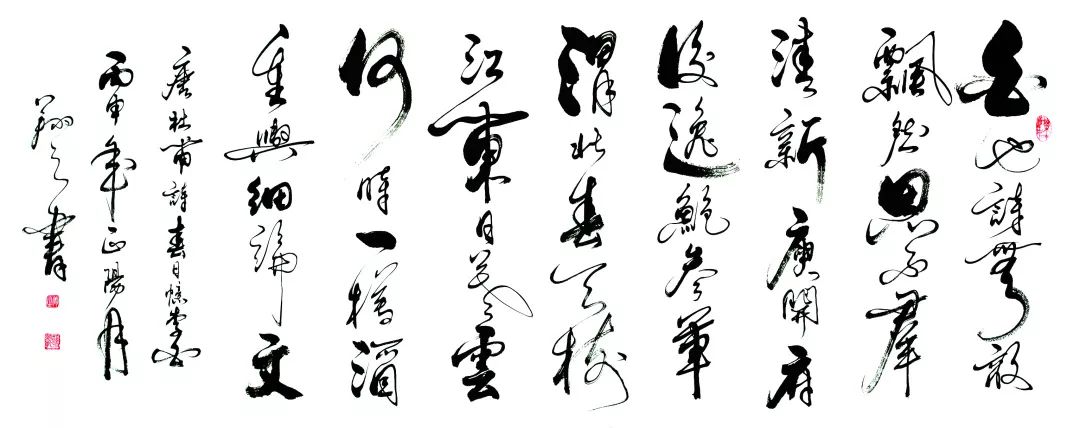 白也詩無敵
飄然思不羣
清新庾開府
俊逸鮑參軍
渭北春天樹
江東日暮雲
何時一樽酒
重與細論文
唐杜甫詩春日憶李白
丙申年正陽月
翔之書